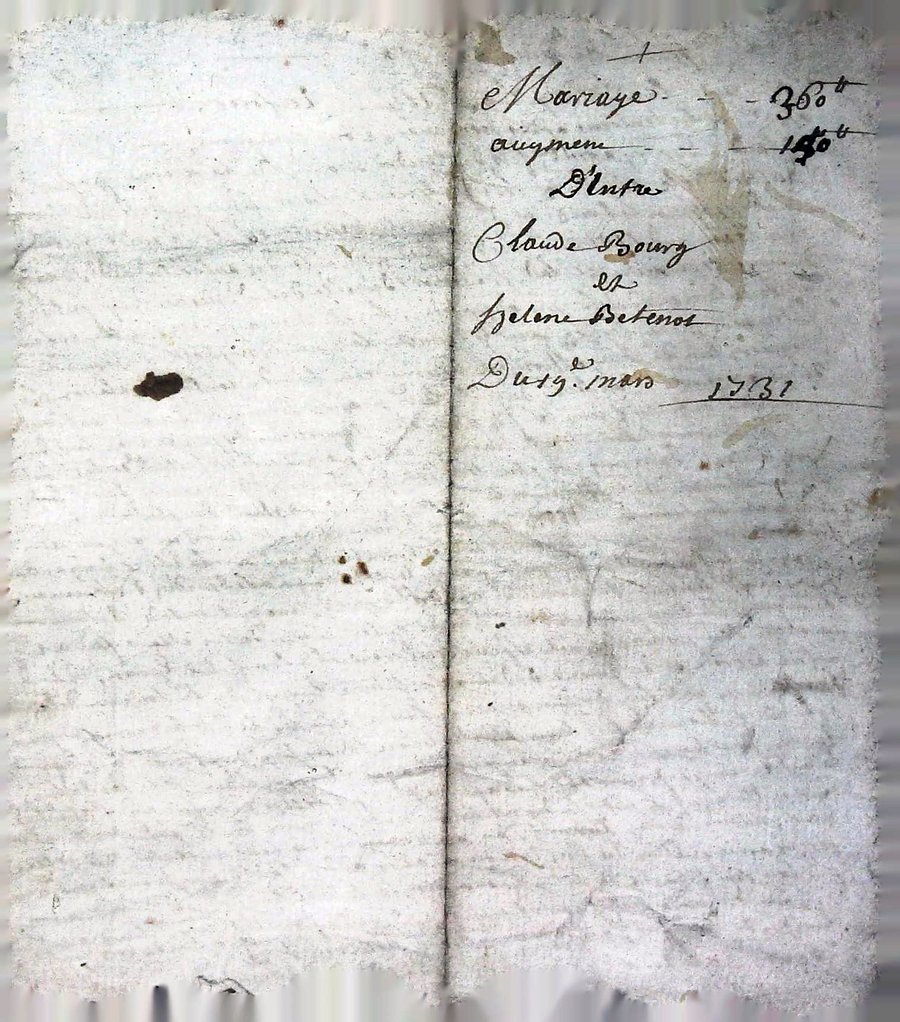 +
Mariage - - - 360ᵗᵗ
augmen - -
D'Entre
Claude Bourg
Et
helene Betenot
Du 19.e mars 1731